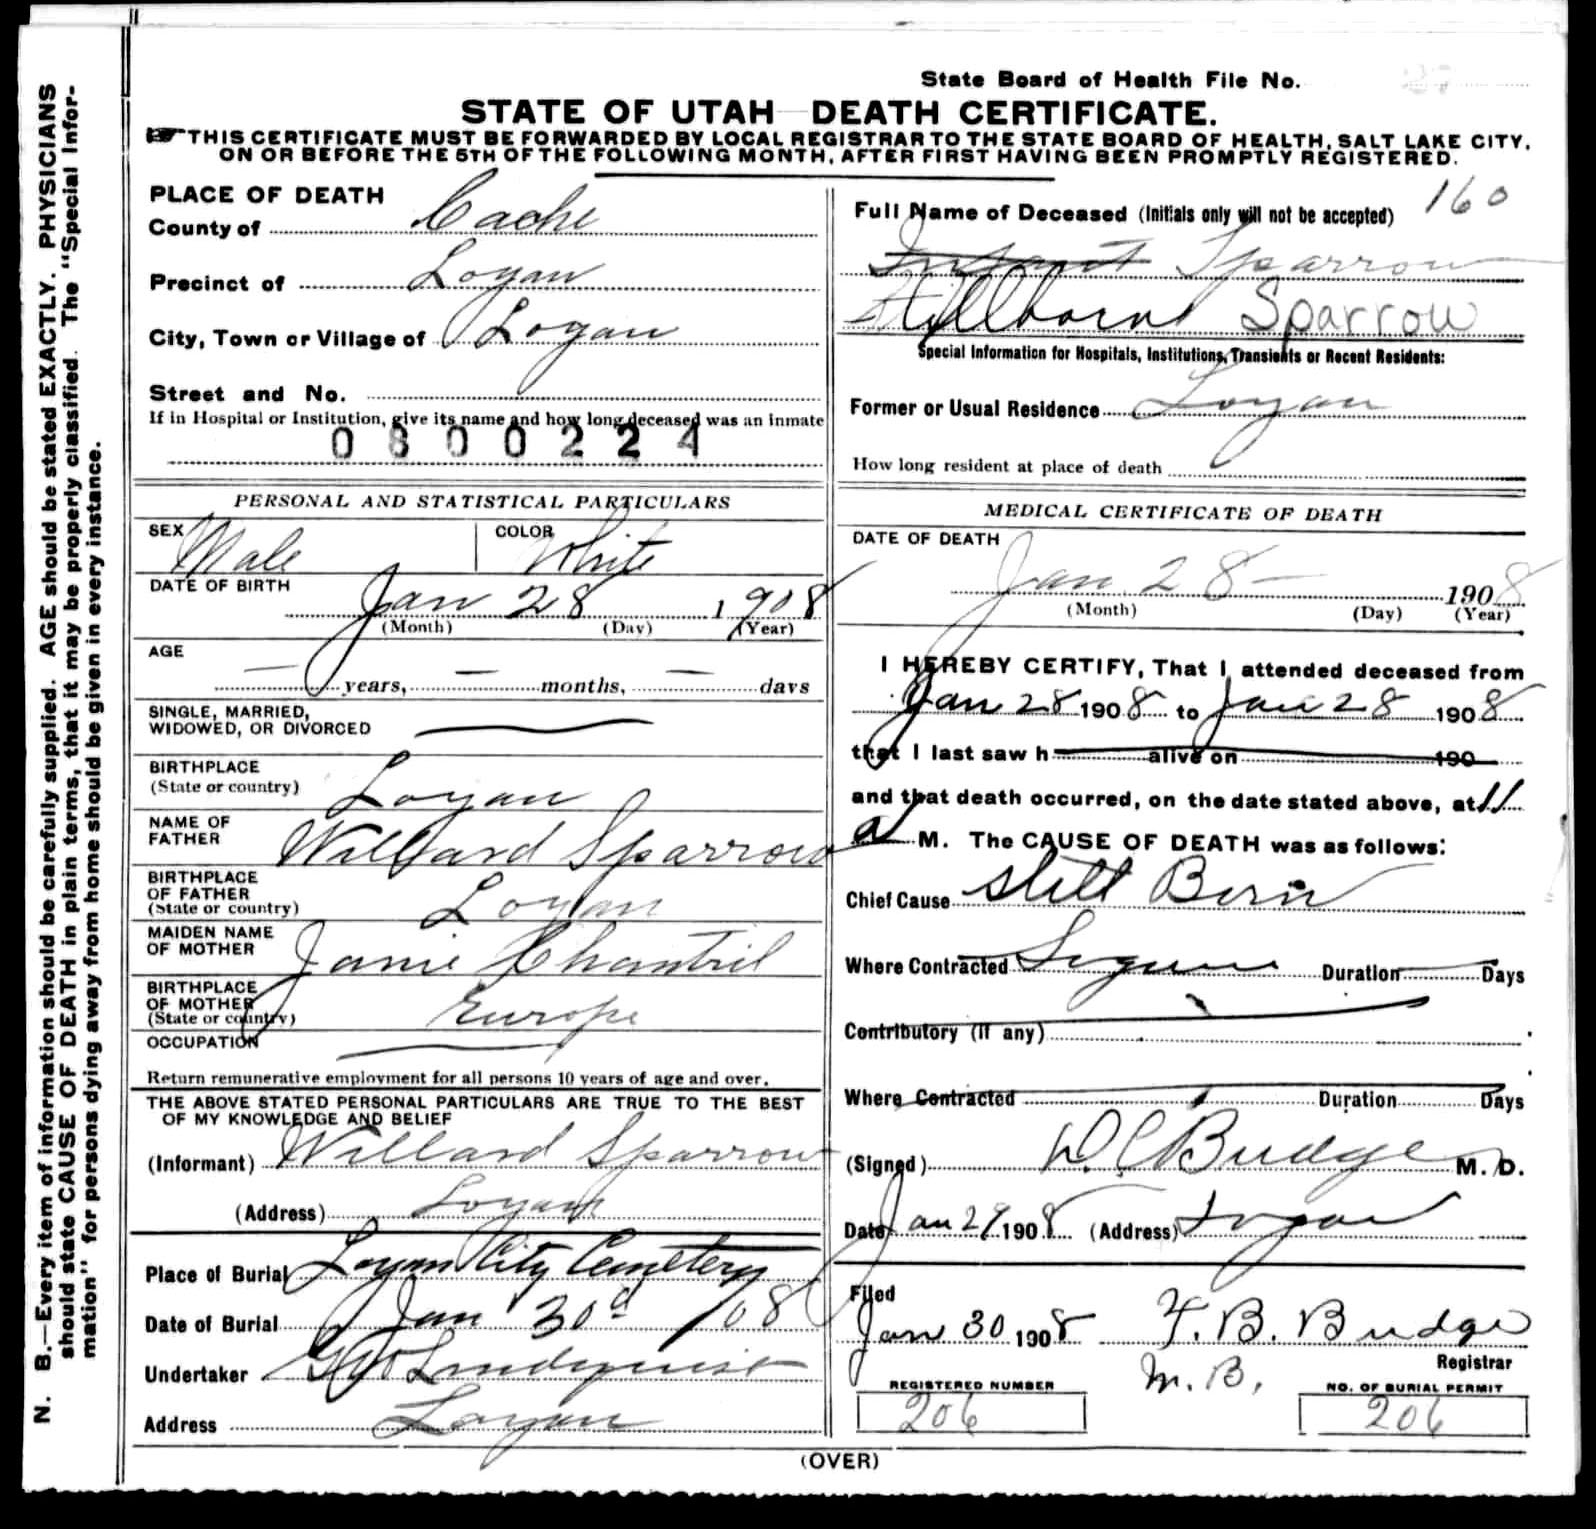 State Board of Health File No.
STATE OF UTAH DEATH CERTIFICATE.
THIS CERTIFICATE MUST BE FORWARDED BY LOCAL REGISTRAR TO THE STATE BOARD OF HEALTH, SALT LAKE CITY,
ON OR BEFORE THE 5TH OF THE FOLLOWING MONTH, AFTER FIRST HAVING BEEN PROMPTLY REGISTERED.
N. B.—Every item of information should be carefully supplied. AGE should be stated EXACTLY. PHYSICIANS
should state CAUSE OF DEATH in plain terms, that it may be properly classified. The "Special Infor-
mation" for persons dying away from home should be given in every instance.
PLACE OF DEATH
County of Cache
Precinct of Logan
City, Town or Village of Logan
Street and No.
If in Hospital or Institution, give its name and how long deceased was an inmate
0800224
PERSONAL AND STATISTICAL PARTICULARS
SEX Male COLOR White
DATE OF BIRTH
Jan 28 1908
(Month) (Day) (Year)
AGE
— years, — months, — days
SINGLE, MARRIED,
WIDOWED, OR DIVORCED
BIRTHPLACE
(State or country) Logan
NAME OF
FATHER Willard Sparrow
BIRTHPLACE
OF FATHER
(State or country) Logan
MAIDEN NAME
OF MOTHER Janie Chantril
BIRTHPLACE
OF MOTHER
(State or country) Europe
OCCUPATION
Return remunerative employment for all persons 10 years of age and over.
THE ABOVE STATED PERSONAL PARTICULARS ARE TRUE TO THE BEST
OF MY KNOWLEDGE AND BELIEF
(Informant) Willard Sparrow
(Address) Logan
Place of Burial Logan City Cemetery
Date of Burial Jan 30d /08
Undertaker Lindquist
Address Logan
160
Full Name of Deceased (Initials only will not be accepted)
Infant Sparrow
Stillborn Sparrow
Special Information for Hospitals, Institutions, Transients or Recent Residents:
Former or Usual Residence Logan
How long resident at place of death
MEDICAL CERTIFICATE OF DEATH
DATE OF DEATH
Jan 28 — 1908
(Month) (Day) (Year)
I HEREBY CERTIFY, That I attended deceased from
Jan 28 1908 to Jan 28 1908
that I last saw h alive on 190
and that death occurred, on the date stated above, at 11
a M. The CAUSE OF DEATH was as follows:
Chief Cause Still Born
Where Contracted Duration Days
Contributory (if any)
Where Contracted Duration Days
(Signed) D. C. Budge M. D.
Date Jan 29 1908 (Address) Logan
Filed
Jan 30 1908 F. B. Budge
Registrar
M. B.
REGISTERED NUMBER
206
NO. OF BURIAL PERMIT
206
(OVER)